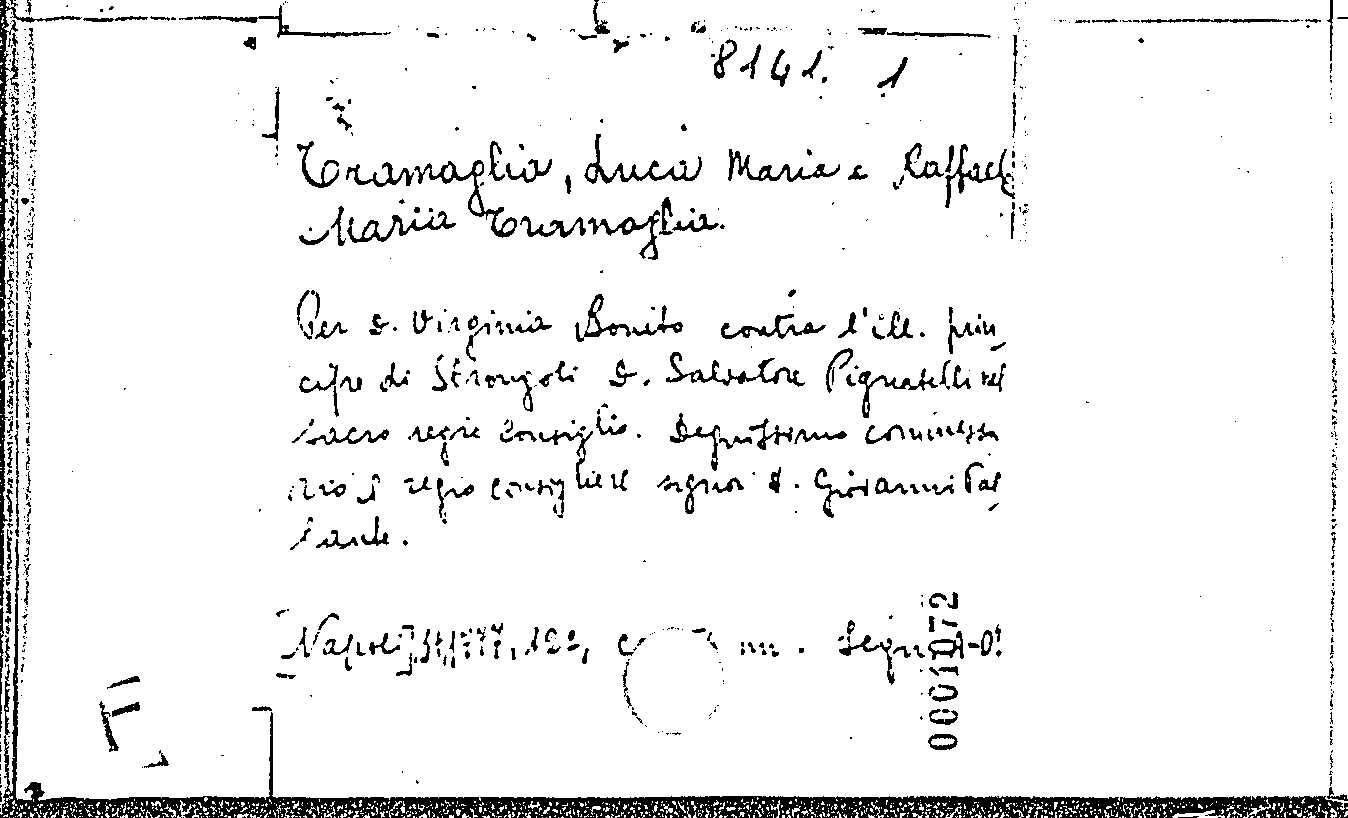 8141. 1
Tramaglia, Luca Maria e Raffaele
Maria Tramaglia.
Per d. Virginia Bonito contra l'ill. prin-
cipe di Strongoli d. Salvatore Pignatelli nel
sacro regio Consiglio. Degnissimo commessa
rio il regio consigliere signor d. Giovanni Pal
lante.
[Napoli] Segn. A-O!
0001072